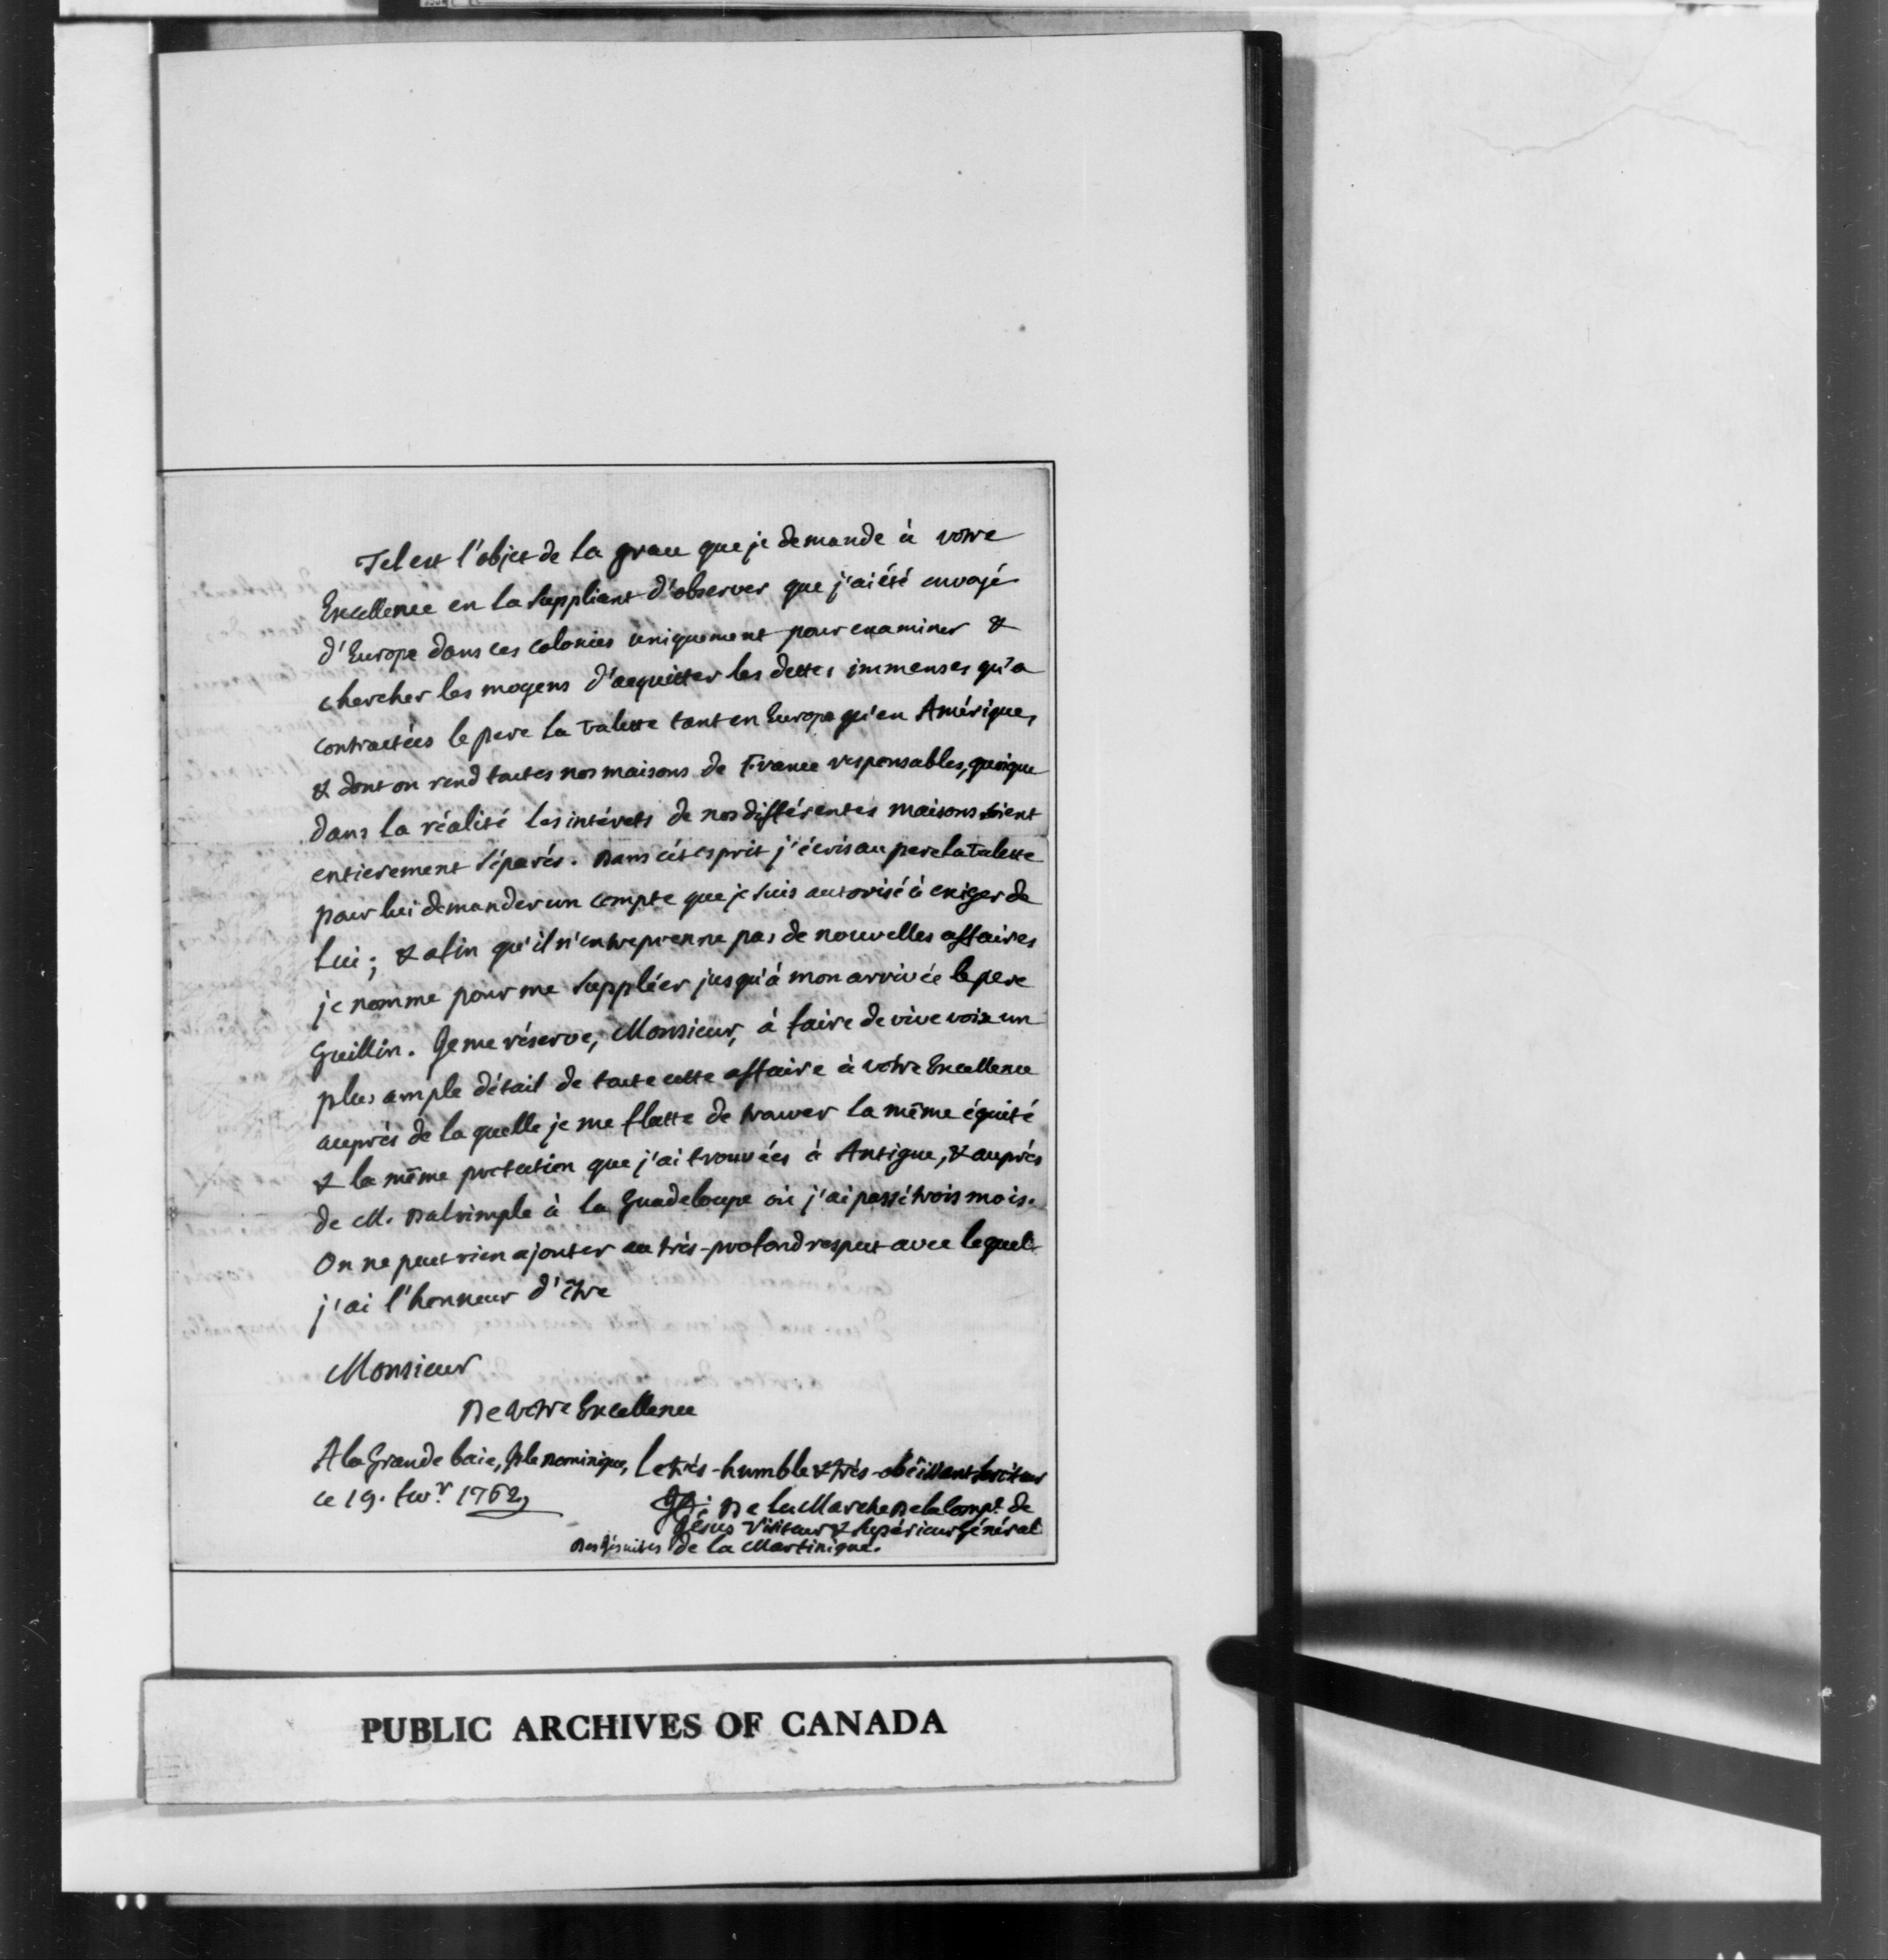 Tel est l'objet de la grace que je demande à votre
Excellence en la suppliant d'observer que j'ai été envoyé
d'Europe dans ces colonies uniquement pour examiner &
chercher les moyens d'acquitter les dettes immenses qu'a
contractées le pere la Valette tant en Europe qu'en Amérique,
& dont on rend toutes nos maisons de France responsables, quoique
dans la réalité les intérets de nos différentes maisons soient
entierement séparés. Dans cet esprit j'écris au pere la Valette
pour lui demander un compte que je suis autorisé à exiger de
lui; & afin qu'il n'entreprenne pas de nouvelles affaires
je nomme pour me suppléer jusqu'à mon arrivée le pere
Guillin. Je me réserve, Monsieur, à faire de vive voix un
plus ample détail de toute cette affaire à votre Excellence
auprès de la quelle je me flatte de trouver la même équité
& la même protection que j'ai trouvées à Antigue, & auprès
de M. Dalrimple à la Guadeloupe où j'ai passé trois mois.
On ne peut rien ajouter au très-profond respect avec lequel
j'ai l'honneur d'être
Monsieur
De votre Excellence
A la Grande baie, Isle Dominique, le très-humble & très-obéissant serviteur
ce 19. fevr. 1762,
De la Marche De la Compe. de
Jésus Visiteur & Supérieur Général
Des Jésuites de la Martinique.
PUBLIC ARCHIVES OF CANADA